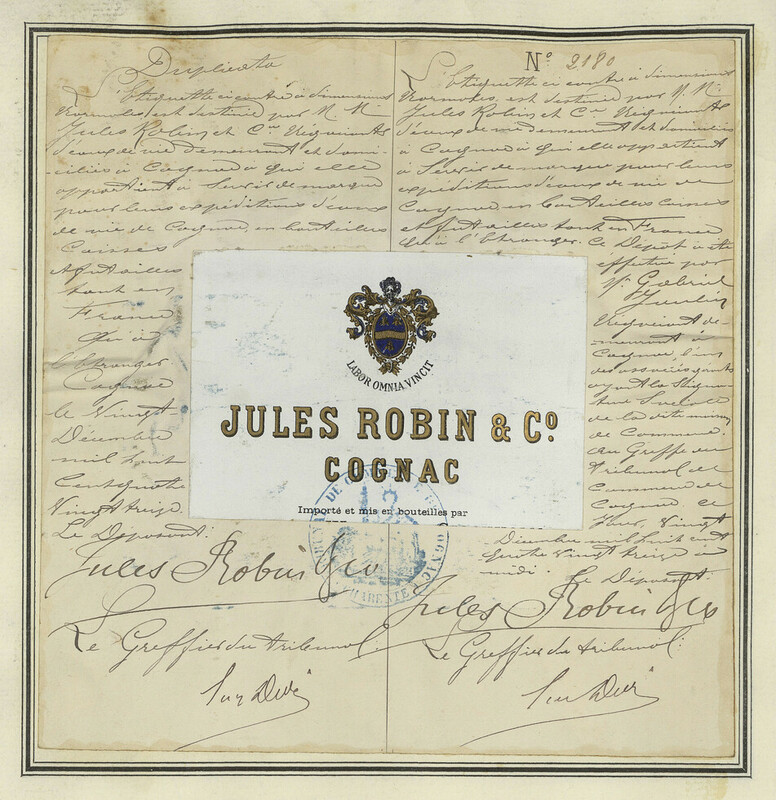 Duplicata
L'étiquette ci contre à dimensions
normales, est destinée par M. M.
Jules Robin et Cie Négociants
d'eaux de vie demeurant et domi-
-ciliés à Cognac à qui elle
appartient à servir de marque
pour leurs expéditions d'eaux
de vie de Cognac, en bouteilles
Caisses
et futailles
tant en
France
qu'à
l'étranger
Cognac
le Vingt
Décembre
mil huit
Cent quatre
Vingt treize.
Le Déposant:
Jules Robin & Co
Le Greffier du tribunal.
No 2180
L'étiquette ci contre à dimensions
normales, est destinée par M. M.
Jules Robin et Cie Négociants
d'eaux de vie demeurant et domiciliés
à Cognac à qui elle appartient
à servir de marque pour leurs
expéditions d'eaux de vie de
Cognac en bouteilles caisses
et futailles tant en France
qu'à l'étranger. Ce Dépôt a été
effectué par
Mr Gabriel
Négociant de-
meurant à
Cognac l'un
des associés gérants
ayant la Signa-
ture Sociale
de la dite maison
de Commerce.
au Greffe du
Tribunal de
Commerce de
Cognac ce
Jour, Vingt
Décembre mil huit cent
quatre Vingt treize à
midi.
Le Déposant:
Jules Robin & Co
Le Greffier du tribunal:
LABOR OMNIA VINCIT
JULES ROBIN & Co.
COGNAC
Importé et mis en bouteilles par
DE COMMERCE COGNAC
CHARENTE